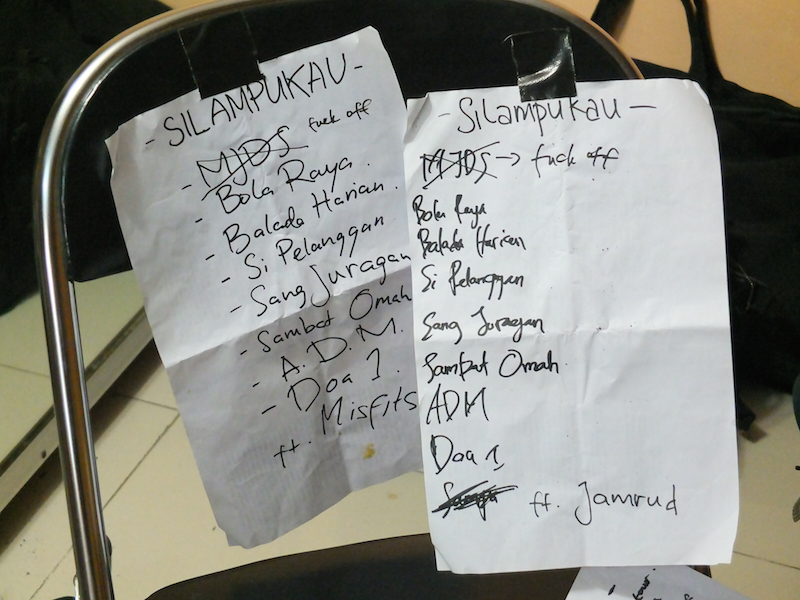 - SILAMPUKAU -
- MJDS fuck off
- Bola Raya.
- Balada Harian.
- Si Pelanggan
- Sang Juragan
- Sambat Omah
- A.D.M.
- Doa 1.
ft. Misfits
- SILAMPUKAU -
MJDS → fuck off
Bola Raya
Balada Harian
Si Pelanggan
Sang Juragan
Sambat Omah
ADM
Doa 1
ft. Jamrud